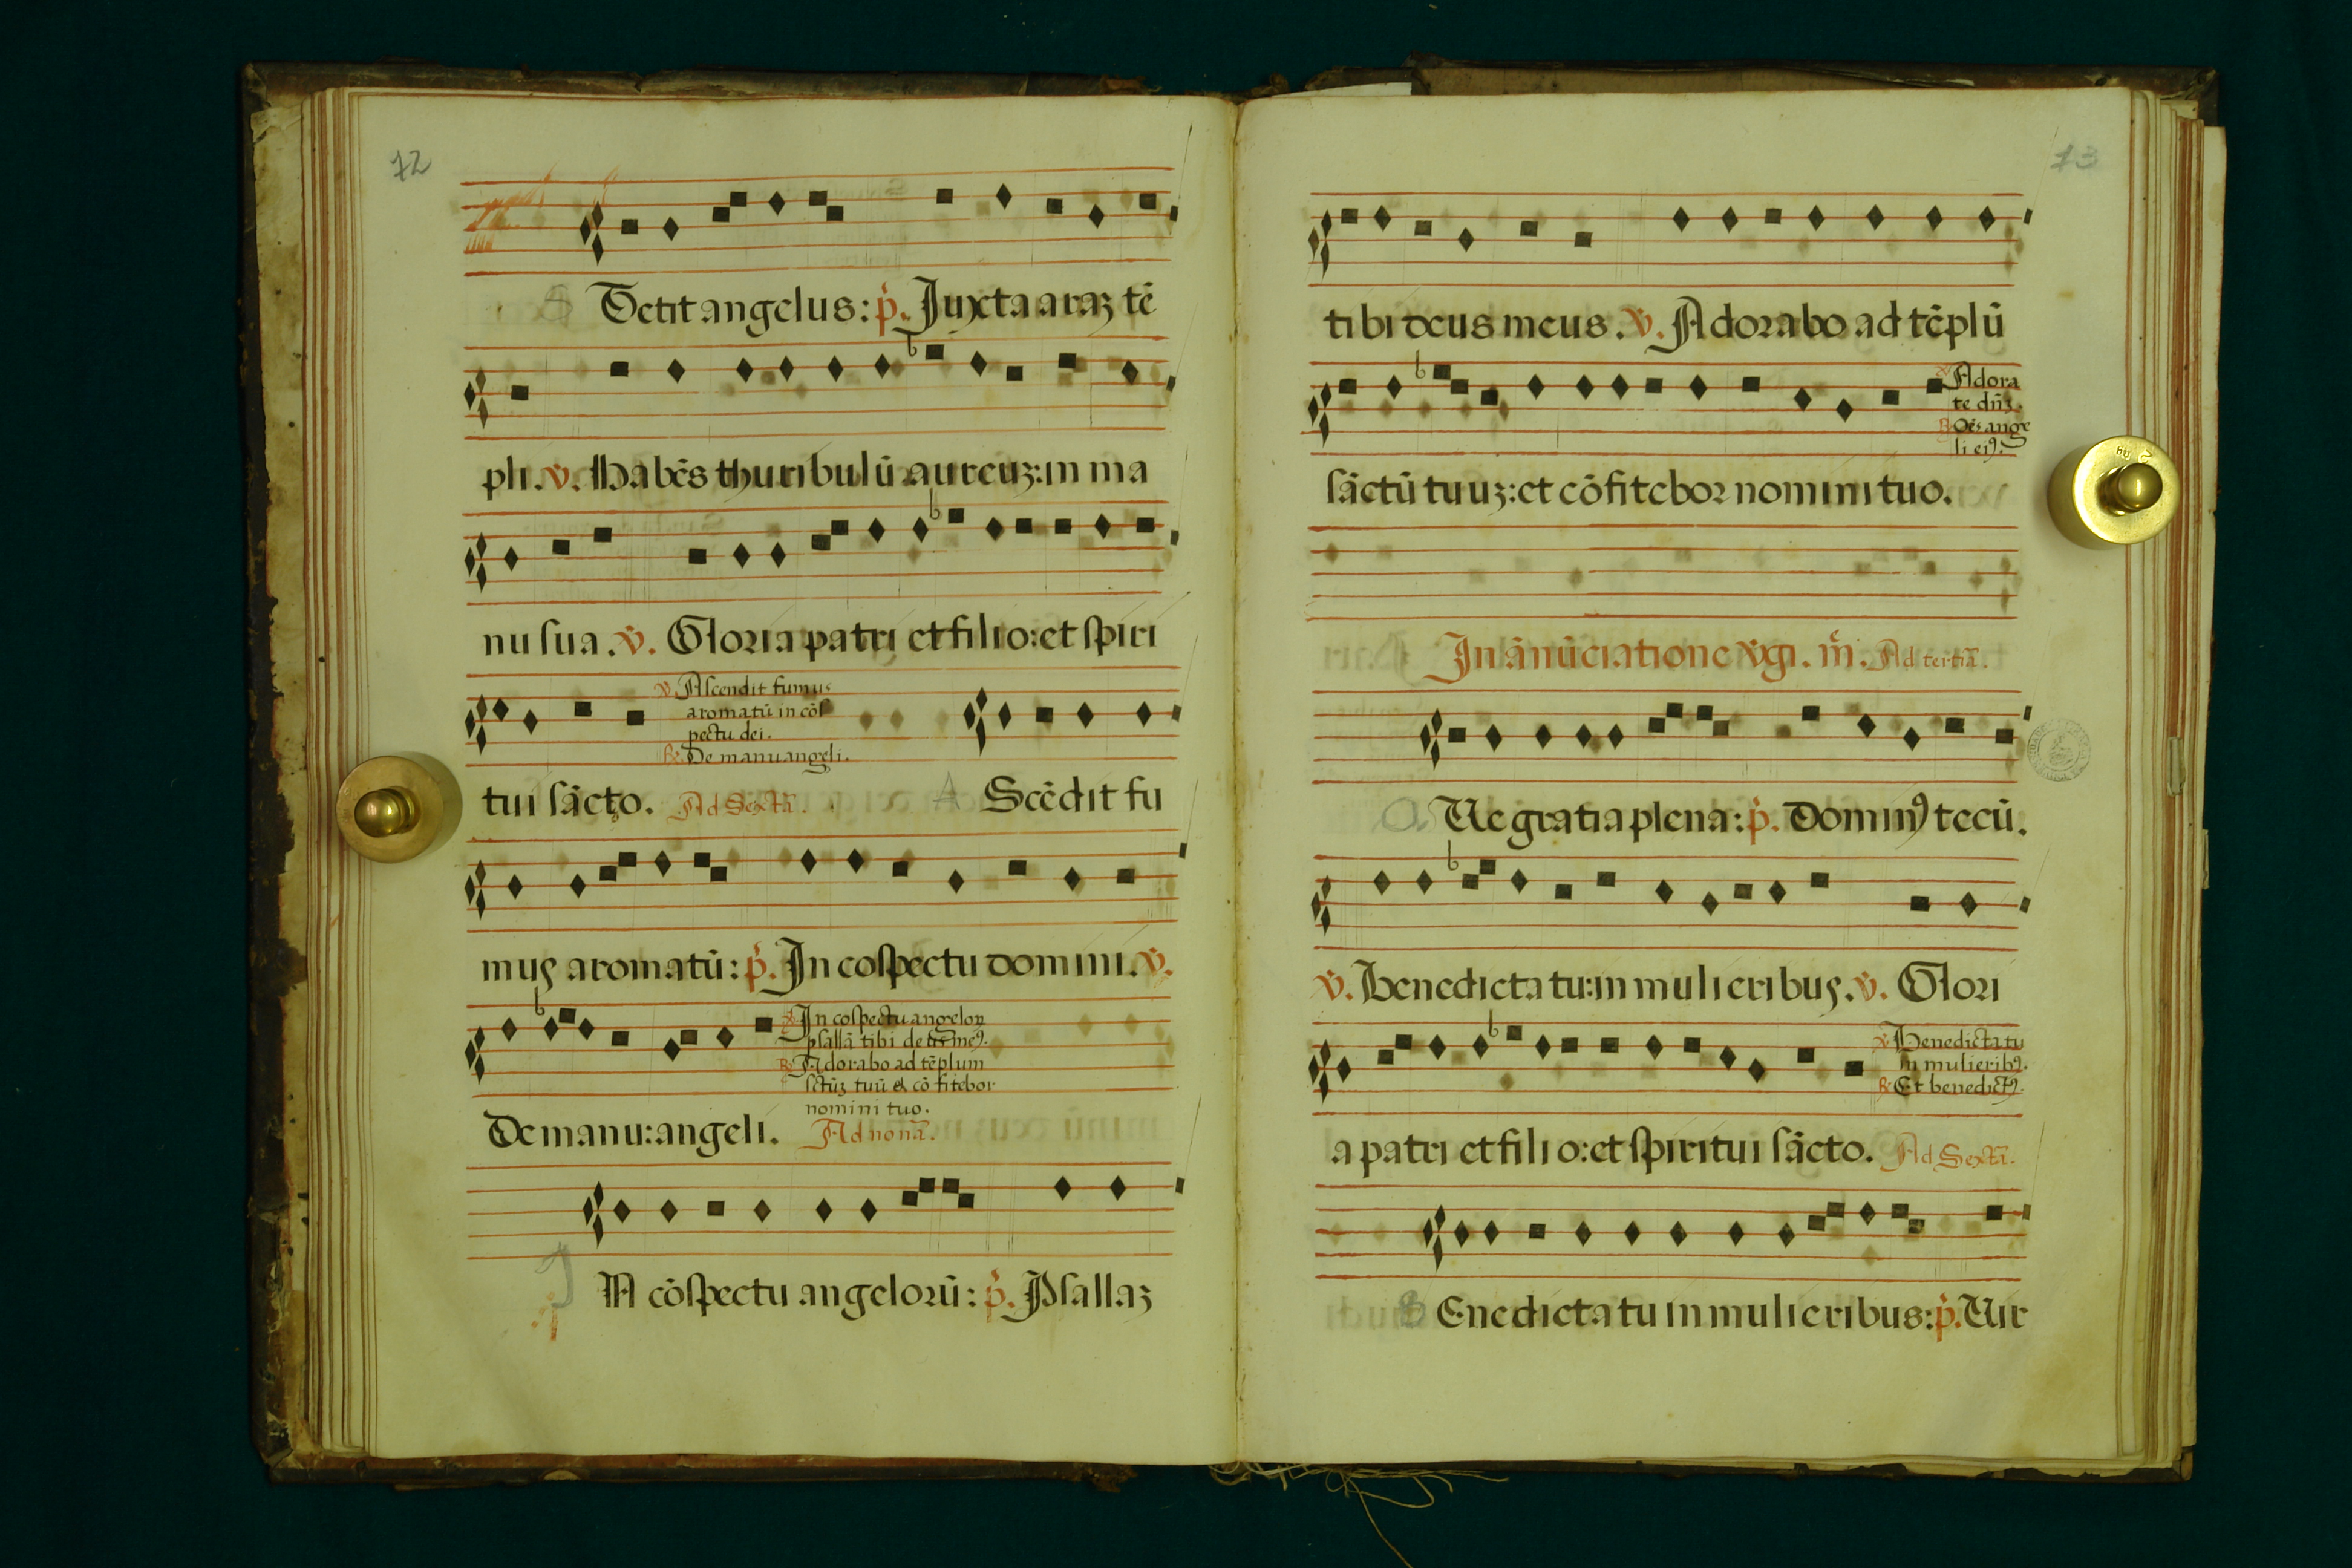 72
S Tetit angelus: p̄. Juxta araʒ tē
pli. v̄. Habēs thuribulū aureuʒ: in ma
nu sua. v̄. Gloria patri et filio: et spiri
v̄. Ascendit fumus
aromatū in cōs
pectu dei.
R̄. De manu angeli.
tui sācto. Ad Sextā. A Scēdit fu
mus aromatū: p̄. In cospectu domini. v̄.
v̄. In cospectu angeloꝝ
psallā tibi deus meꝰ.
R̄. Adorabo ad tēplum
sctūʒ tuū & cō fitebor
nomini tuo.
De manu: angeli. Ad nonā.
J N cōspectu angelorū: p̄. Psallaʒ
73
tibi deus meus. v̄. Adorabo ad tēplū
v̄. Adora
te dn̄ʒ.
R̄. Oēs ange
li eiꝰ.
sāctū tuuʒ: et cōfitebor nomini tuo.
In ānūciatione v̄gi. m̄. Ad tertiā.
A Ue gratia plena: p̄. Dominꝰ tecū.
v̄. Benedicta tu: in mulieribus. v̄. Glori
v̄. Benedicta tu
in mulieribꝰ.
R̄. Et benedictꝰ.
a patri et filio: et spiritui sācto. Ad Sextā.
B Enedicta tu in mulieribus: p̄. Uir